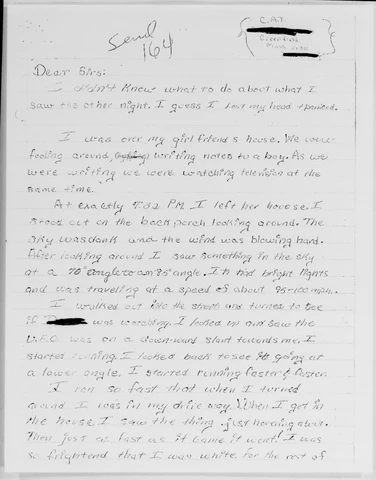 Send
164
C.A.T.
Dear Sirs:
I didn't know what to do about what I
saw the other night. I guess I lost my head + panicked.
I was over my girl friend's house. We were
fooling around, writing notes to a boy. As we
were writing we were watching television at the
same time.
At exactly 7:32 PM I left her house. I
stood out on the back porch looking around. The
sky was dark and the wind was blowing hard.
After looking around I saw something in the sky
at a 70° angle to an 85° angle. It had bright lights
and was travelling at a speed of about 95-100 mph.
I walked out into the street and turned to see
if was watching. I looked up and saw the
U.F.O. was on a downward slant towards me. I
started running. I looked back to see it going at
a lower angle. I started running faster & faster.
I ran so fast that when I turned
around I was in my drive way. When I got in
the house I saw the thing just hovering
Then just as fast as it came it went! I was
so frightend that I was white for the rest of